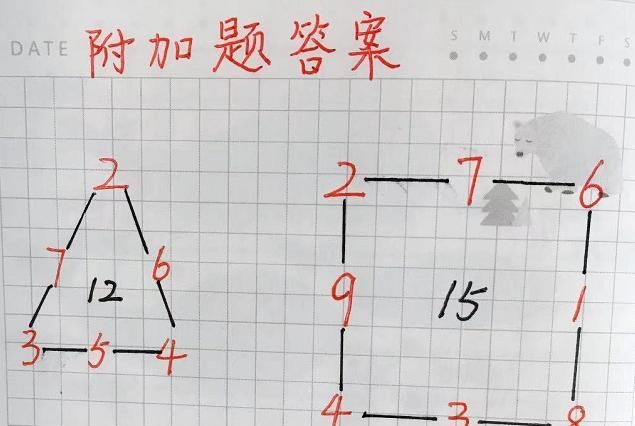 DATE 附加题答案 S M T W T F S
2 2 7 6
7 6
12 9 15 1
3 5 4
4 3 8